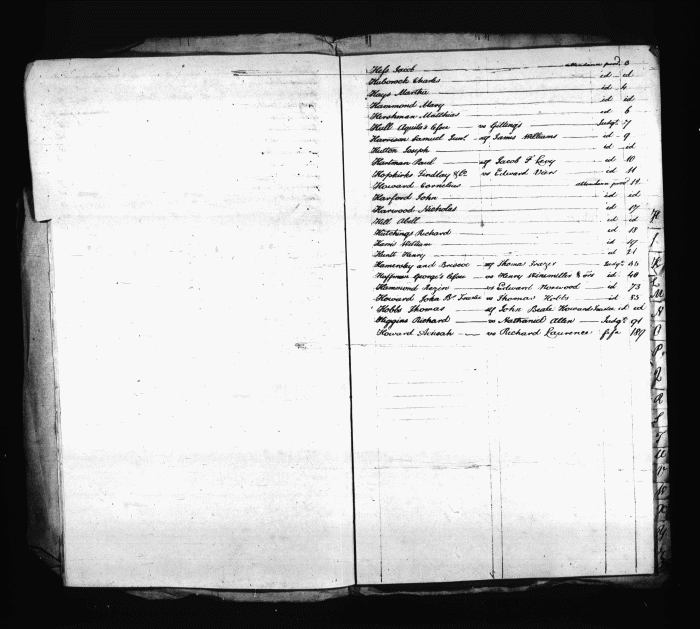 Hess Jacob attendance prov'd 3
Hubbard Charles id id
Hays Martha id 4
Hammond Mary id id
Hershman Matthias id 6
Hall Aquila's Exors vs Gittings Judgt. 7
Harrison Samuel Surv. of James Williams id 9
Hutton Joseph id id
Hartman Paul of Jacob F Levy id 10
Hopkirks Findlay & Co vs Edward Vier id 11
Howard Cornelius attendance prov'd 14
Harford John id id
Harwood Nicholas id 17
Hill Abell id id
Hutchings Richard id 18
Harris William id 19
Hunt Henry id 21
Hamersby and Briscoe of Thomas Frazer Judgt. 35
Hoffman George's Exors vs Henry Winemiller & ors id 48
Hammond Rezin vs Edward Norwood id 73
Howard John B. Trustee vs Thomas Hobbs id 83
Hobbs Thomas of John Beale Howard Trustee id id
Higgins Richard vs Nathaniel Allen Judgt. 91
Howard Avisah vs Richard Lawrence fifa 189
H
I
K
L
M
N
O
P
Q
R
S
T
U
V
W
X
Y
Z